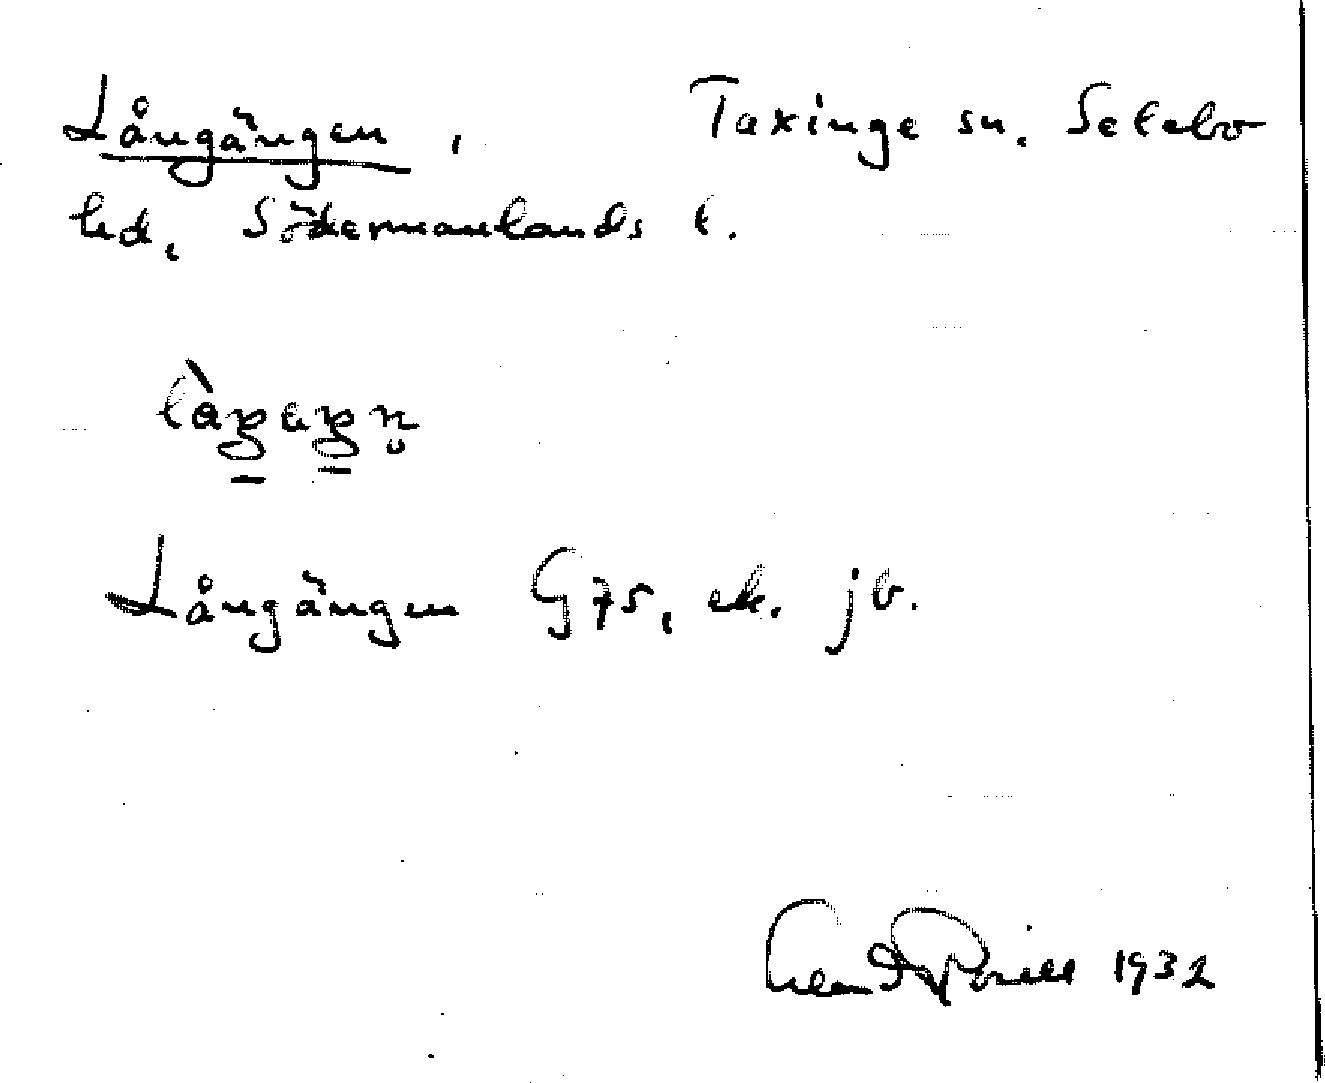 Långängen, Taxinge sn. Selebo
hd, Södermanlands l.
Långängen G75, ek. jb.
1932